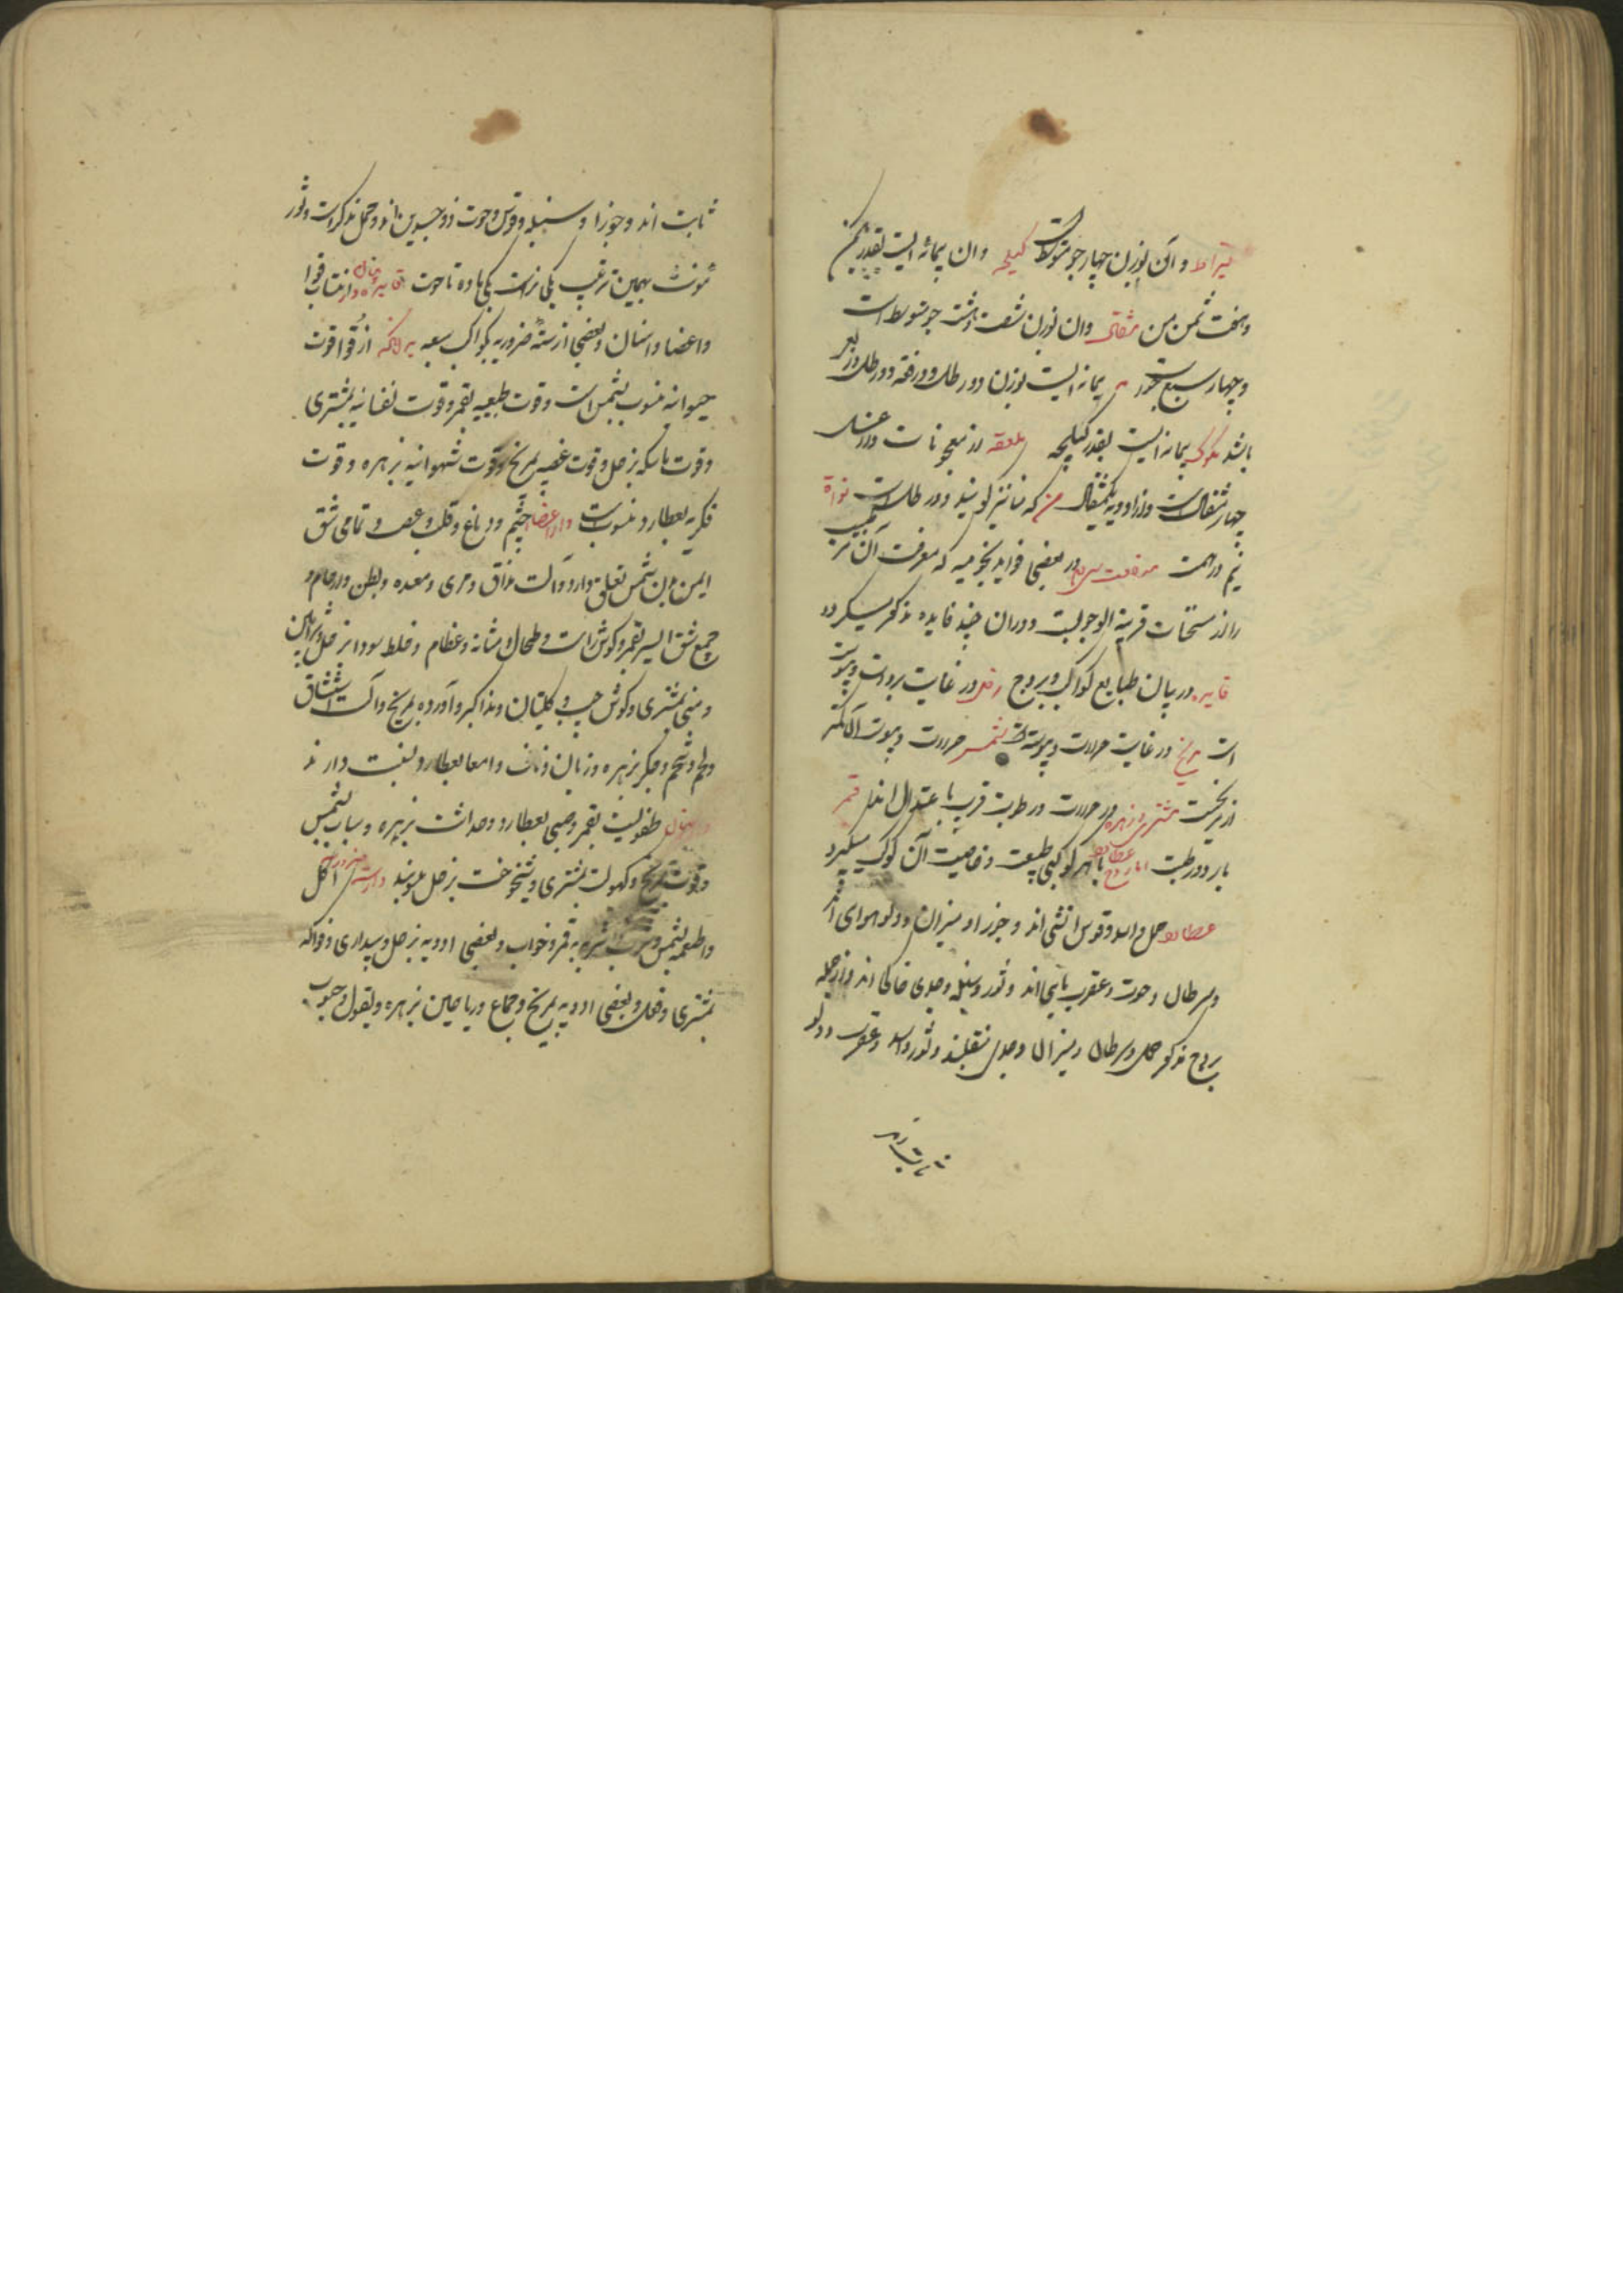 قیراط و آن بوزن چهار جو متوسط است کیلجه و ان پیمانه ایست بقدر یکمن
و هفت ثمن من مثقال و ان بوزن شصت و هشت جو متوسط است
و چهار سبع جو پیمانه ایست بوزن دو رطل و
باشد مکوک پیمانه ایست بقدر کیلجه ملعقه در معجونات و در عسل
چهار مثقالست و در ادویه یکمثقال من که منا نیز گویند دو رطل است نواة
نیم درهمست در بعضی فواید نجومیه که معرفت آن طبیب
را از مستحبات قریبة الوجوبست و در ان چند فایده مذکور میگردد
فایده در بیان طبایع کواکب و بروج زحل در غایت برودت و یبوست
است مریخ در غایت حرارت و یبوست شمس حرارت و یبوست آن کمتر
از مریخست مشتری و زهره در حرارت و رطوبت قریب باعتدال اند قمر
بارد و رطبست اما عطارد با هر کوکبی طبیعت و خاصیت آن کوکب میگیرد
حمل و اسد و قوس آتشی اند و جوزا و میزان و دلو هوای اند
و سرطان و حوت و عقرب مایی اند و ثور و سنبله و جدی خاکی اند و از جمله
بروج مذکور حمل و سرطان و میزان و جدی منقلبند و ثور و اسد و عقرب و دلو
ثابت اند
ثابت اند و جوزا و سنبله و قوس و حوت ذو جسدین اند و حمل مذکر است و ثور
مؤنث بهمین ترتیب یکی نر است یکی ماده تا حوت فایده در بیان انتساب قوا
و اعضا و اسنان و بعضی از ستهٔ ضروریه بکواکب سبعه بدانکه از قوا قوت
حیوانیه منسوب بشمس است و قوت طبیعیه بقمر و قوت نفسانیه بمشتری
و قوت ماسکه بزحل و قوت غضبیه بمریخ و قوت شهوانیه بزهره و قوت
فکریه بعطارد منسوبست و از اعضا چشم و دماغ و قلب و عصب و تمامی شق
ایمن بدن بشمس تعلق دارد و آلت مذاق و مری و معده و بطن و ارحام و
جمیع شق ایسر بقمر و گوش راست و طحال و مثانه و عظام و خلط سودا بزحل و شرایین
و منی بمشتری و گوش چپ و کلیتان و مذاکیر و آورده بمریخ و آلت استنشاق
و لحم و شحم و جگر بزهره و زبان و امعا بعطارد نسبت دارند
طفولیت بقمر و صبی بعطارد و حداثت بزهره و شباب بشمس
و قوت بمریخ و کهولت بمشتری و شیخوخت بزحل منسوبند و از سته ضروریه اکل
و اطعمه بشمس و شرب و اشربه بقمر و خواب و بعضی ادویه بزحل و بیداری و فواکه
بمشتری و بعضی ادویه بمریخ و جماع و ریاحین بزهره و بقول و حبوب